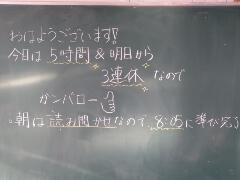 おはようございます!!
今日は5時間&明日から
3連休なので
ガンバロー
。朝は読み聞かせなので、8:05に準備完了